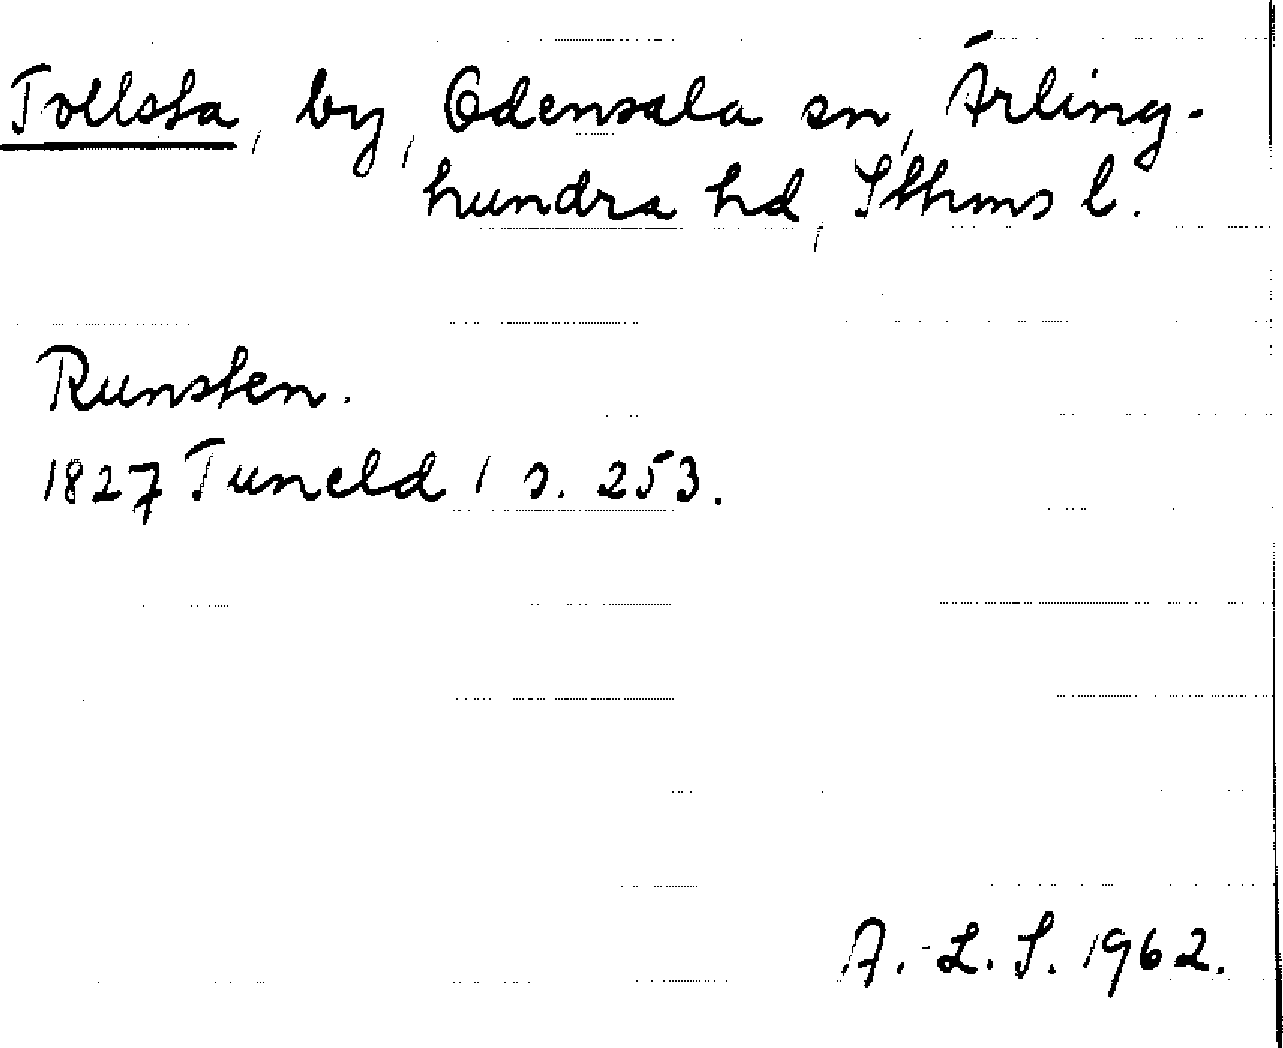 Tollsta, by, Odensala sn, Ärling-
hundra hd, Sthms l.
Runsten.
1827 Tuneld 1 s. 253.
A.-L. S. 1962.